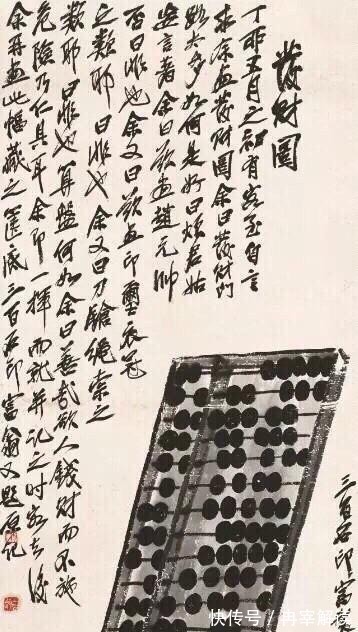 發財圖
丁卯五月之初有客至自言
求余畫發財圖余曰發財門
路太多如何是好曰煩君姑
妄言著余曰欲畫趙元帥
否曰非也余又曰欲畫印璽衣冠
之類耶曰非也余又曰刀鎗繩索之
類耶曰非也算盤何如余曰善哉欲人錢財而不施
危險乃仁具耳余即一揮而就并記之時客去後
余再畫此幅藏之篋底三百石印富翁又題原記
三百石印富翁
快传号/冉宰解读